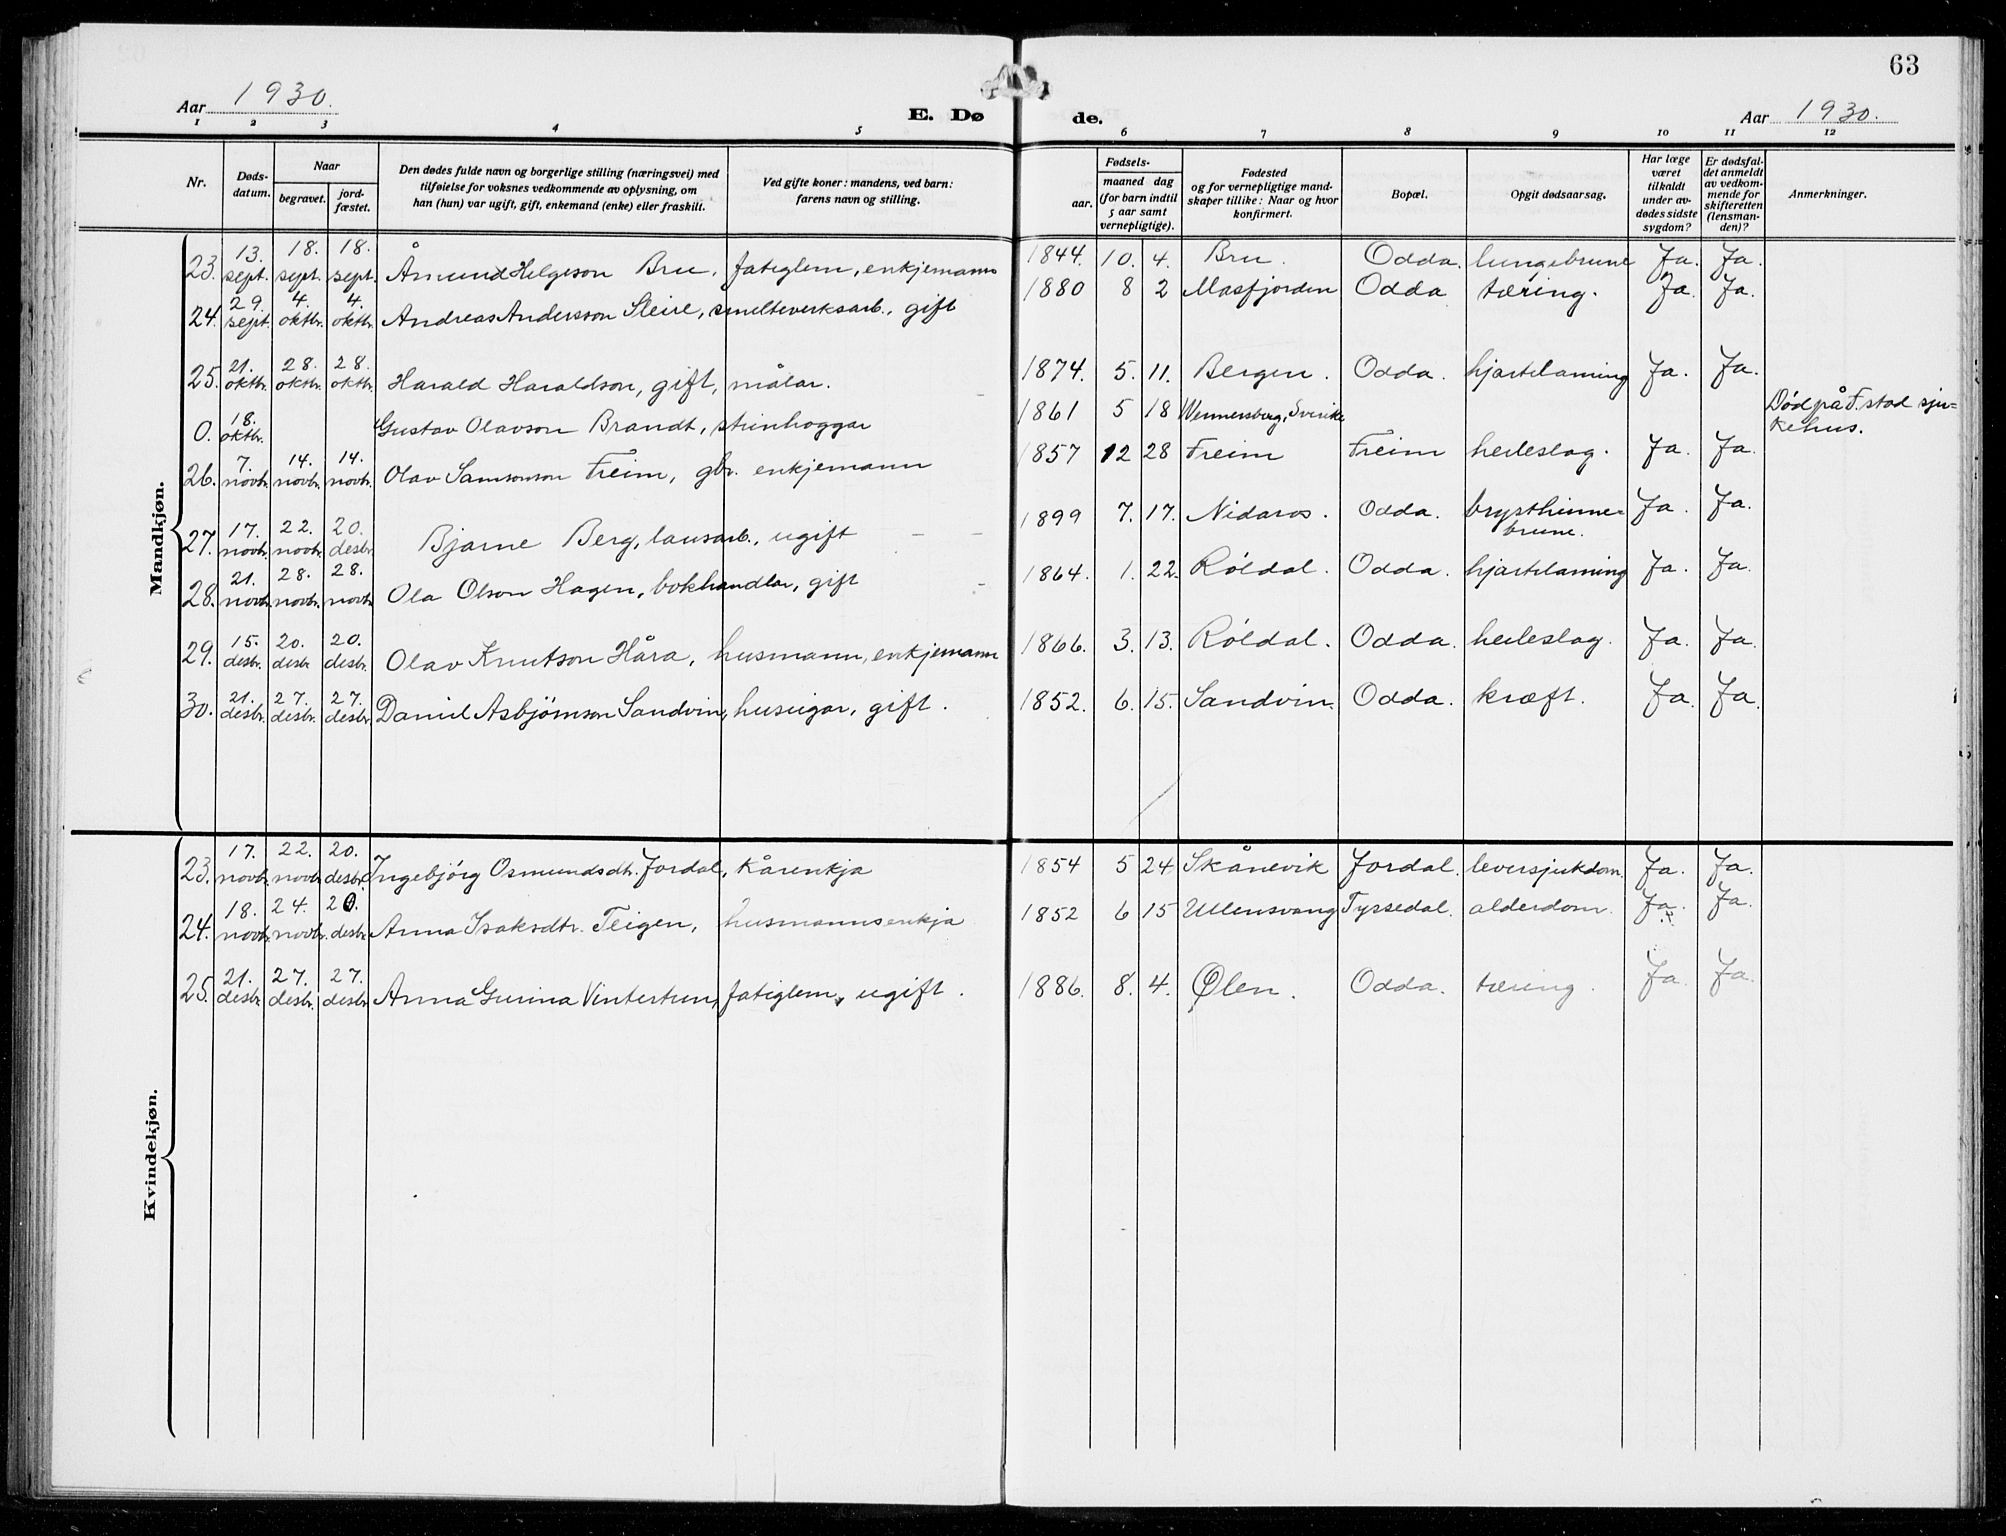 63
Aar 1930.
E. Dø de.
Aar 1930.
1 2 3 4 5 6 7 8 9 10 11 12
Nr.
Døds-
datum.
Naar
begravet.
jord-
fæstet.
Den dødes fulde navn og borgerlige stilling (næringsvei) med
tilføielse for voksnes vedkommende av oplysning, om
han (hun) var ugift, gift, enkemand (enke) eller fraskilt.
Ved gifte koner: mandens, ved barn:
farens navn og stilling.
Fødsels-
aar.
maaned dag
(for barn indtil
5 aar samt
vernepligtige).
Fødested
og for vernepligtige mand-
skaper tillike: Naar og hvor
konfirmert.
Bopæl.
Opgit dødsaarsag.
Har læge
været
tilkaldt
under av-
dødes sidste
sygdom?
Er dødsfal-
det anmeldt
av vedkom-
mende for
skifteretten
(lensman-
den)?
Anmerkninger.
Mandkjøn.
23. 13. sept. 18. sept. 18. sept. Åmund Helgeson Bru, fatiglem, enkjemann 1844. 10. 4. Bru. Odda. lungebrune Ja. Ja.
24. 29. sept. 4. oktbr. 4. oktbr. Andreas Andersson Sleire, smelteverksarb., gift 1880 8 2 Masfjorden Odda tæring. Ja. Ja.
25. 21. oktbr. 28. oktbr. 28. oktbr. Harald Haraldson, gift, målar. 1874. 5. 11. Bergen. Odda. hjartelaming Ja. Ja.
0. 18. oktbr. Gustav Olavson Brandt, steinhoggar 1861 5 18 Wennersberg, Sverike Død på F.stad sju-
kehus.
26. 7. novbr. 14. novbr. 14. novbr. Olav Samsonson Freim, gbr. enkjemann 1857 12 28 Freim Freim heileslag. Ja. Ja.
27. 17. novbr. 22. novbr. 20. desbr. Bjarne Berg, lausarb., ugift 1899 7. 17. Nidaros. Odda. brysthinne-
brune. Ja. Ja.
28. 21. novbr. 28. novbr. 28. novbr. Ola Olson Hagen, bokhandlar, gift 1864. 1. 22. Røldal. Odda. hjartelaming Ja. Ja.
29. 15. desbr. 20. desbr. 20. desbr. Olav Knutson Håra, husmann, enkjemann 1866. 3. 13. Røldal. Odda. heileslag. Ja. Ja.
30. 21. desbr. 27. desbr. 27. desbr. Daniel Asbjørnson Sandvin, huseigar, gift. 1852. 6. 15. Sandvin. Odda. kræft. Ja. Ja.
Kvindekjøn.
23. 17. novbr. 22. novbr. 20. desbr. Ingebjörg Osmundsdtr. Jordal, kårenkja 1854 5 24 Skånevik Jordal. leversjukdom. Ja. Ja.
24. 18. novbr. 24. novbr. 20. desbr. Anna Isaksdtr. Teigen, husmannsenkja 1852 6 15 Ullensvang Tyssedal. alderdom. Ja. Ja.
25. 21. desbr. 27. desbr. 27. desbr. Anna Gurina Vintertun, fatiglem, ugift. 1886. 8. 4. Ølen. Odda. tæring. Ja. Ja.